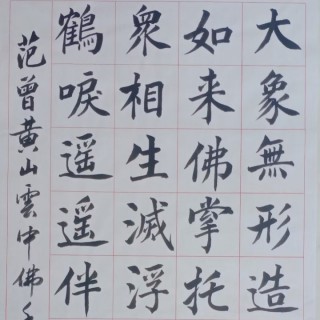 大象無形造
如来佛掌托
衆相生滅浮
鶴唳遥遥伴
范曾黄山雲中佛手